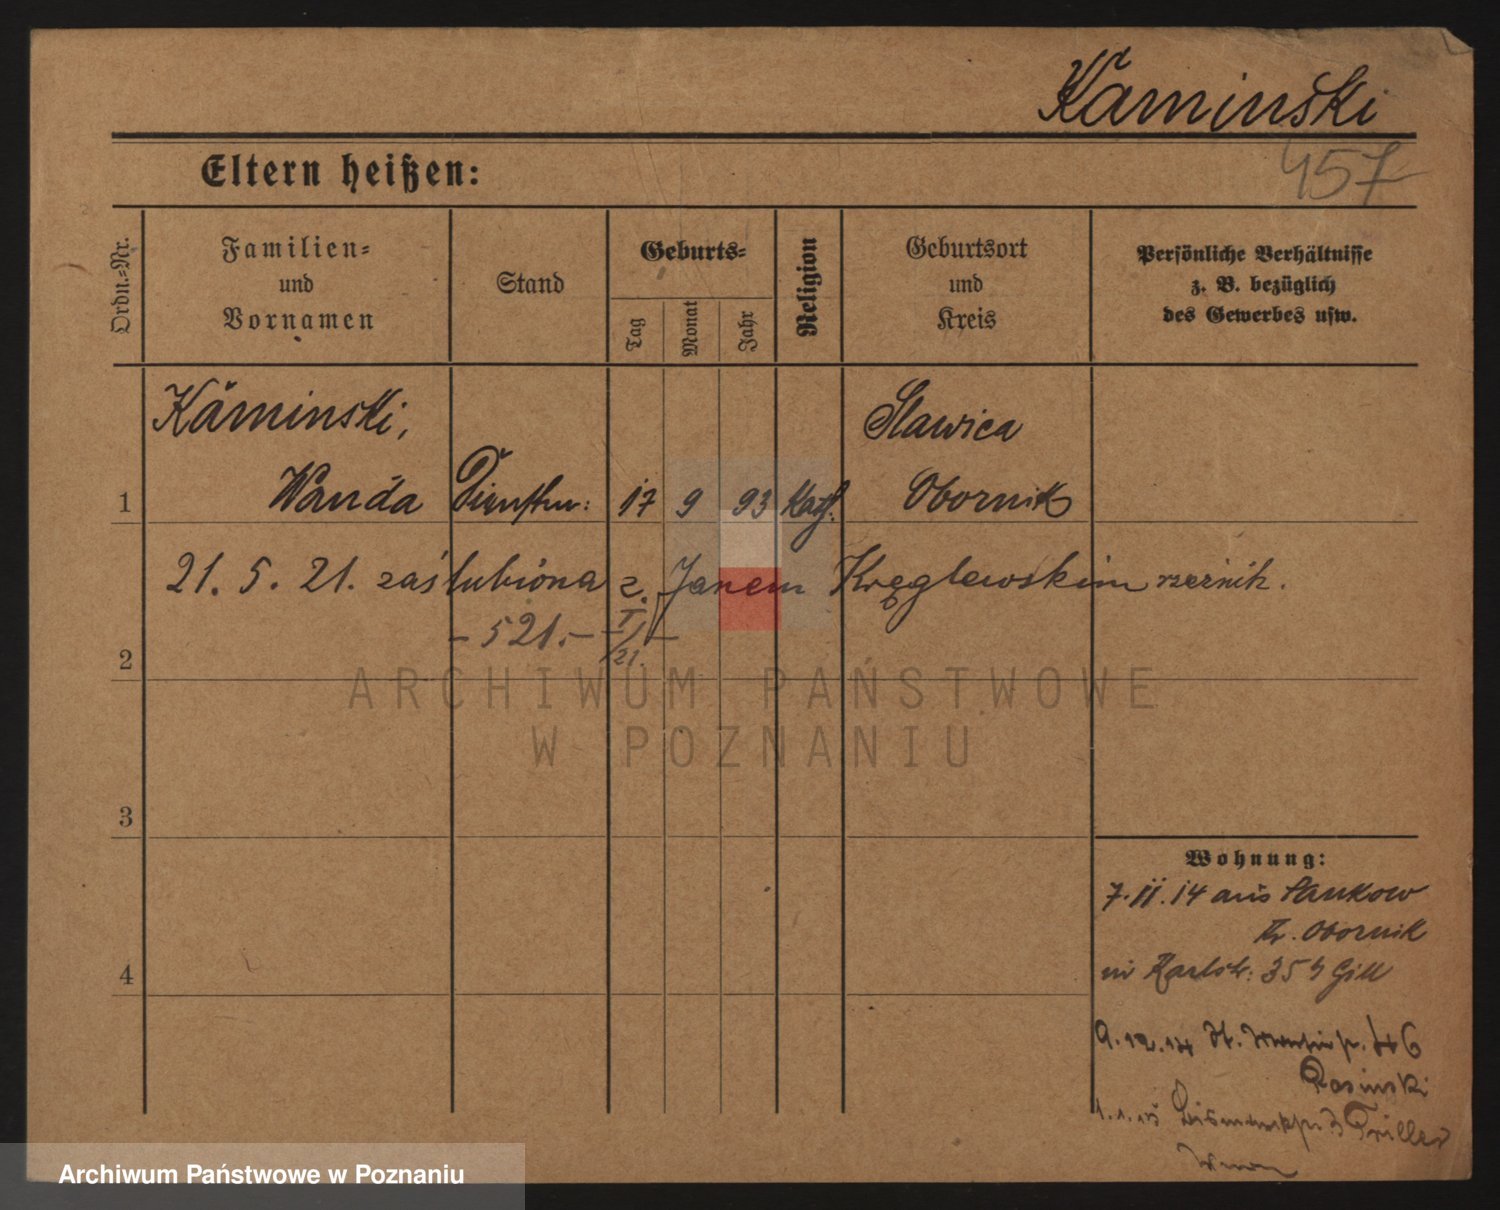 Kaminski
457
Eltern heißen:
Ordn.-Nr.
Familien- und Vornamen
Stand
Geburts-
Tag
Monat
Jahr
Religion
Geburtsort und Kreis
Persönliche Verhältnisse z. B. bezüglich des Gewerbes usw.
Kaminski,
Slawica
1 Wanda Dienstm: 17 9 93 Kath. Obornik
21. 5. 21. zaślubiona z. Janem Kręglewskim rzeźnik.
- 521.-
2
ARCHIWUM PAŃSTWOWE
W POZNANIU
3
4
Wohnung:
7.II.14 aus
Kr. Obornik
in Karlstr: 35
9.12.14 St. 46
Rosinski
1.1.15 3
Archiwum Państwowe w Poznaniu